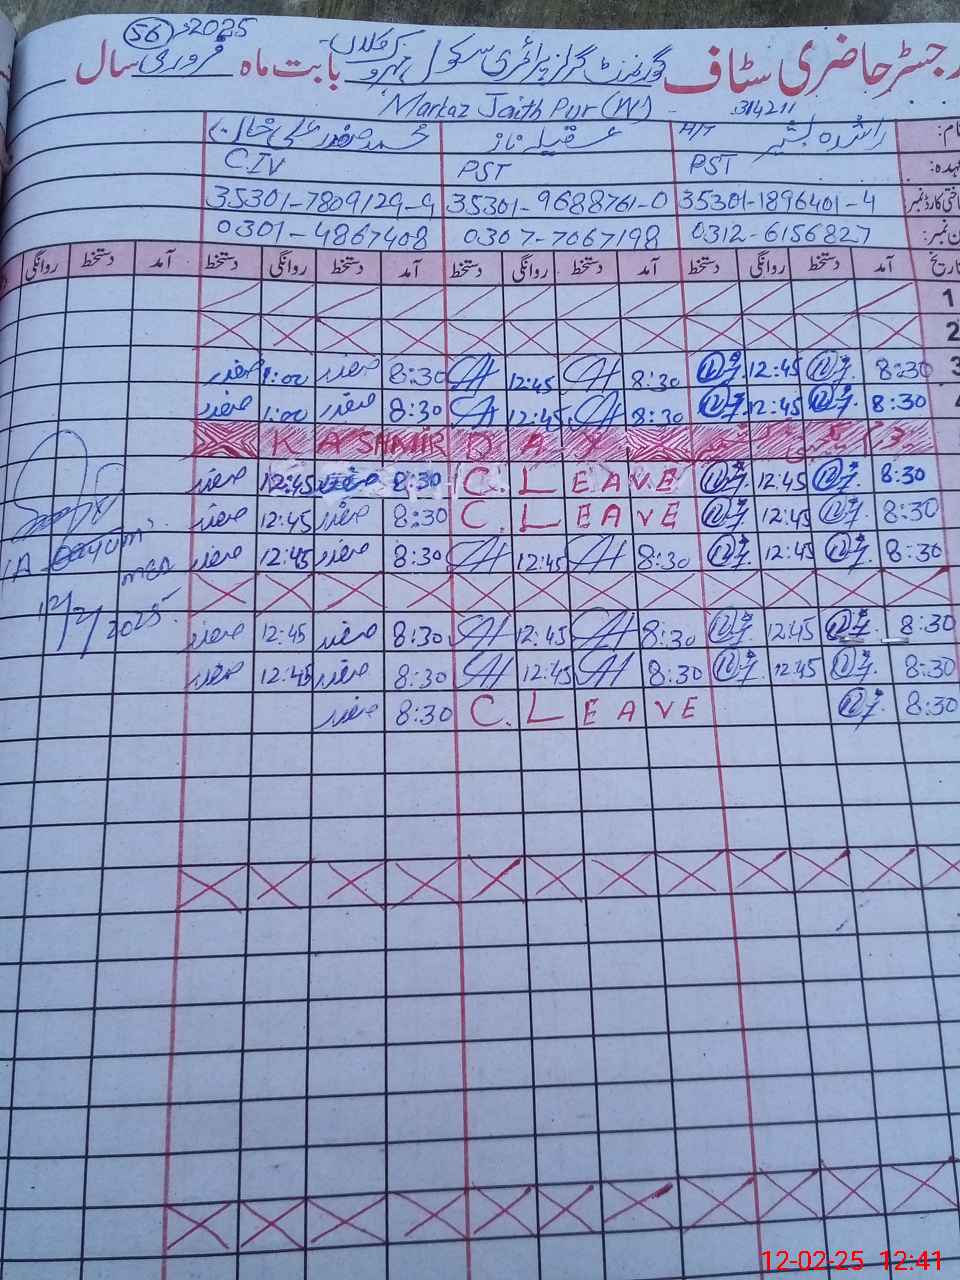 56 2025
رجسٹر حاضری سٹاف گورنمنٹ گرلز پرائمری سکول بابت ماہ فروری سال
Markaz Jaith Pur (W) 314211
نام: راشدہ بشیر H/T عقیلہ ناز محمد صفدر علی
عہدہ: PST PST C.IV
شناختی کارڈ نمبر: 35301-1896401-4 35301-9688761-0 35301-7809129-9
فون نمبر: 0312-6156827 0307-7067198 0301-4867408
تاریخ آمد دستخط روانگی دستخط آمد دستخط روانگی دستخط آمد دستخط روانگی دستخط آمد دستخط روانگی
1
2
3 8:30 12:45 8:30 12:45 8:30 صفدر 1:00 صفدر
4 8:30 12:45 8:30 12:45 8:30 صفدر 1:00 صفدر
KASHMIR DAY یوم یکجہتی کشمیر
8:30 12:45 C. LEAVE 8:30 صفدر 12:45 صفدر
8:30 12:45 C. LEAVE 8:30 صفدر 12:45 صفدر
8:30 12:45 8:30 12:45 8:30 صفدر 12:45 صفدر
8:30 12:45 8:30 12:45 8:30 صفدر 12:45 صفدر
8:30 12:45 8:30 12:45 8:30 صفدر 12:45 صفدر
8:30 C. LEAVE 8:30 صفدر
MEA
12/2/2025
12-02-25 12:41